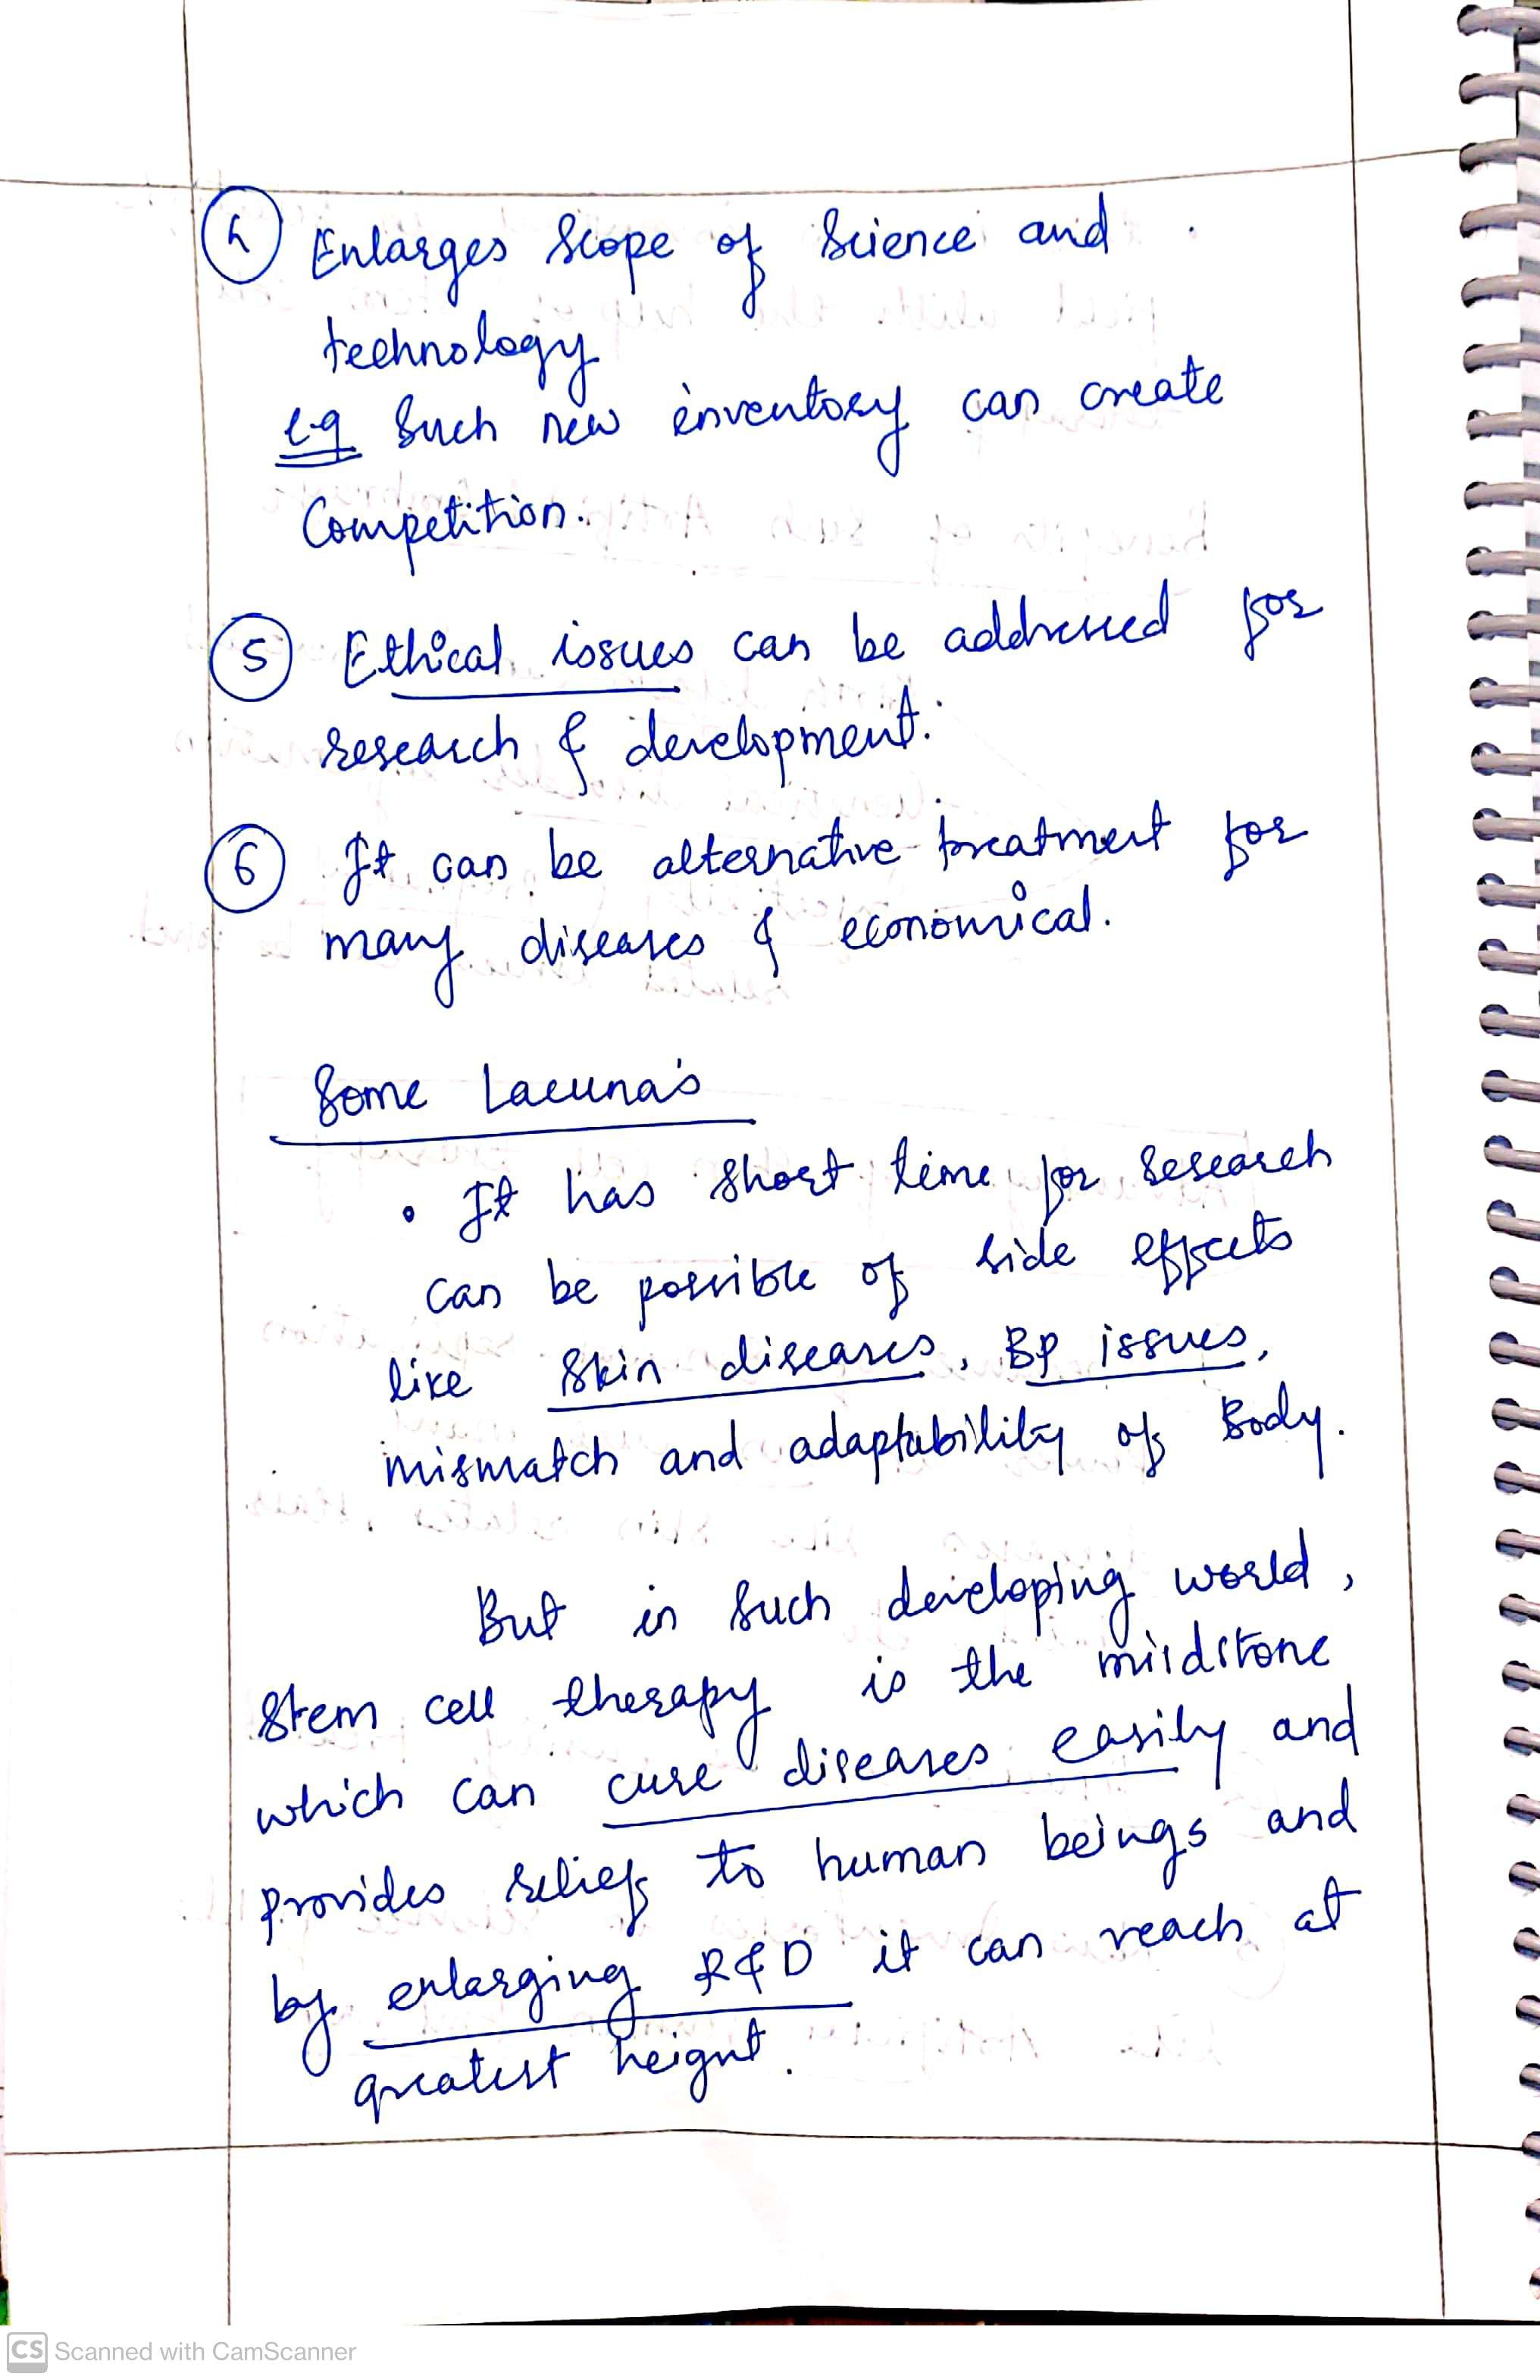 4 Enlarges scope of Science and
technology
e.g Such new inventory can create
Competition.
5 Ethical issues can be addressed for
research & development.
6 It can be alternative treatment for
many diseases & economical.
Some Lacuna's
• It has short time for research
can be possible of side effects
like skin diseases, BP issues,
mismatch and adaptability of Body.
But in such developing world,
Stem cell therapy is the mildstone
which can cure diseases easily and
provides relief to human beings and
by enlarging R&D it can reach at
greatest height.
CS Scanned with CamScanner